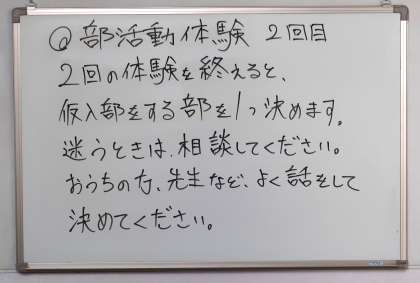 @部活動体験 2回目
2回の体験を終えると、
仮入部をする部を1つ決めます。
迷うときは、相談してください。
おうちの方、先生など、よく話をして
決めてください。